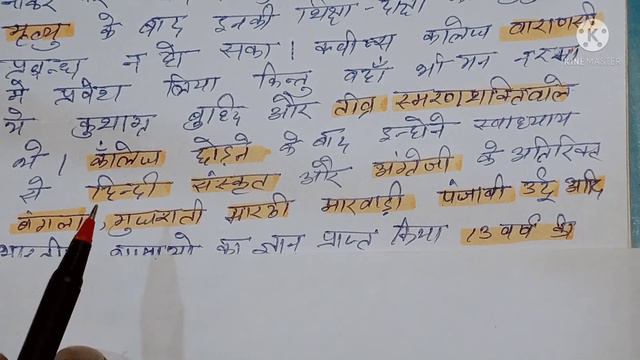 के बाद इनकी शिक्षा-दीक्षा
मृत्यु
प्रबन्ध न हो सका। क्वीन्स कॉलेज वाराणसी
में प्रवेश लिया किन्तु वहाँ भी मन न रमा
ये कुशाग्र बुध्दि और तीव्र स्मरणशक्तिवाले
थे। कॉलेज छोड़ने के बाद इन्होंने स्वाध्याय
से हिन्दी संस्कृत और अंग्रेजी के अतिरिक्त
बंगला, गुजराती मराठी मारवाड़ी पंजाबी उर्दू आदि
भारतीय भाषाओं का ज्ञान प्राप्त किया 13 वर्ष की
KINEMASTER